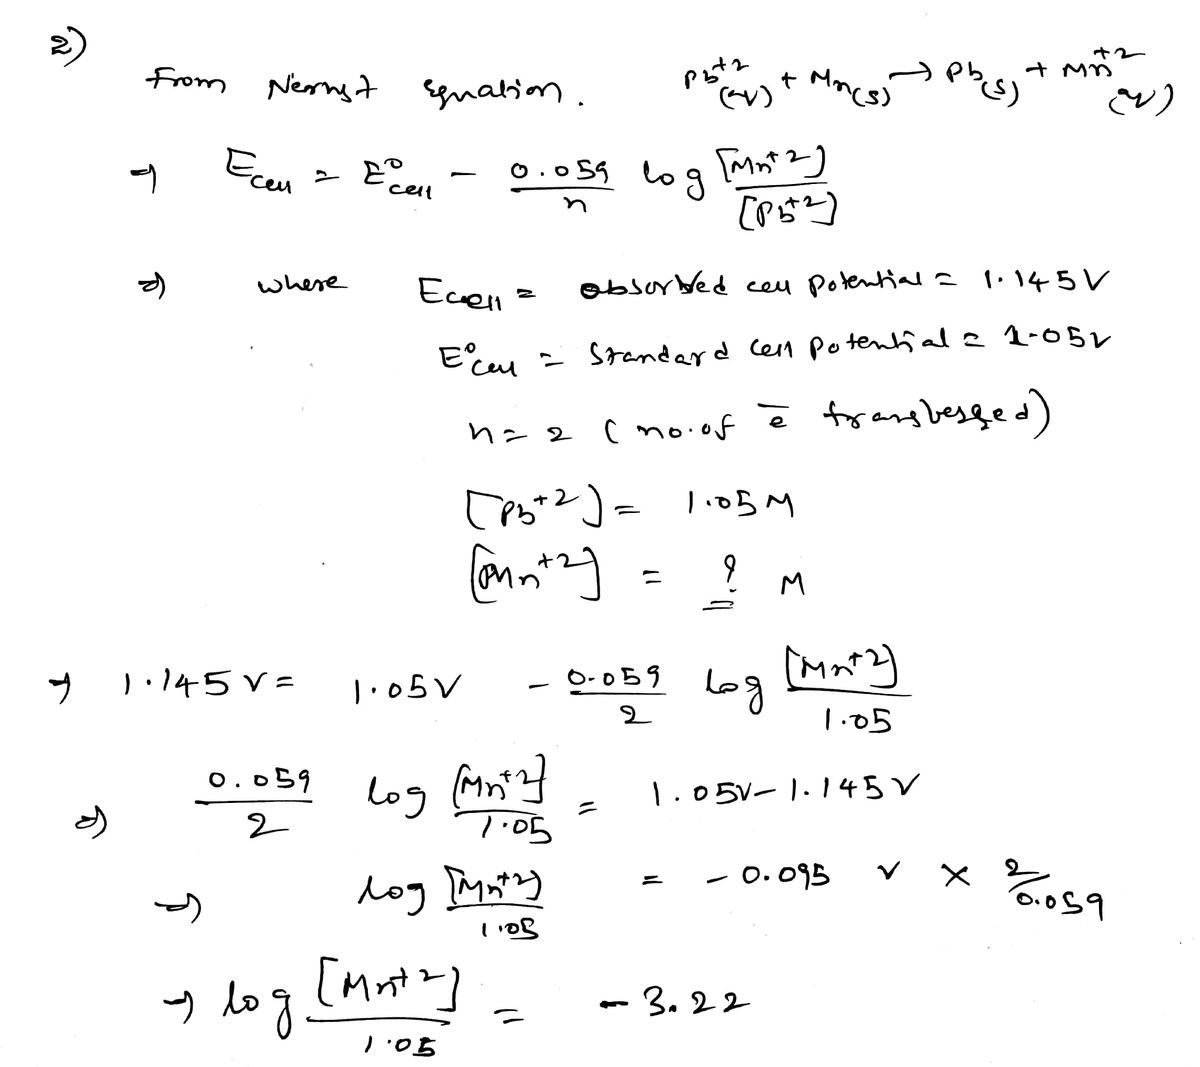 2)
From Nernst Equation. Pb⁺²(aq) + Mn(s) → Pb(s) + Mn⁺²(aq)
⇒ Ecell = E°cell − 0.059/n log [Mn⁺²]/[Pb⁺²]
⇒ where Ecell = observed cell potential = 1.145V
E°cell = Standard cell potential = 1.05V
n = 2 (no. of e̅ transferred)
[Pb⁺²] = 1.05 M
[Mn⁺²] = ? M
⇒ 1.145 V = 1.05V − 0.059/2 log [Mn⁺²]/1.05
⇒ 0.059/2 log [Mn⁺²]/1.05 = 1.05V − 1.145V
⇒ log [Mn⁺²]/1.05 = − 0.095 V × 2/0.059
→ log [Mn⁺²]/1.05 = − 3.22